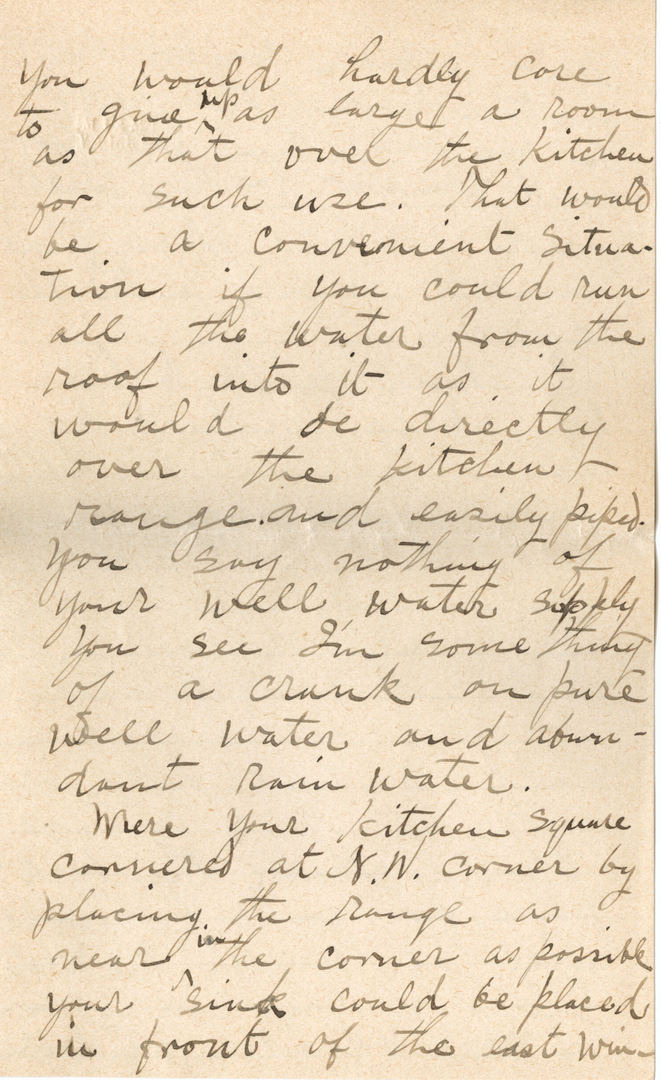 You would hardly care
to give up as large a room
as that over the kitchen
for such use. That would
be a convenient situa-
tion if you could run
all the water from the
roof into it as it
would be directly
over the kitchen
range. and easily piped.
You say nothing of
your well water supply
You see I'm something
of a crank on pure
well water and abun-
dant rain water.
Were your kitchen square
cornered at N.W. corner by
placing the range as
near in the corner as possible
your sink could be placed
in front of the east win-